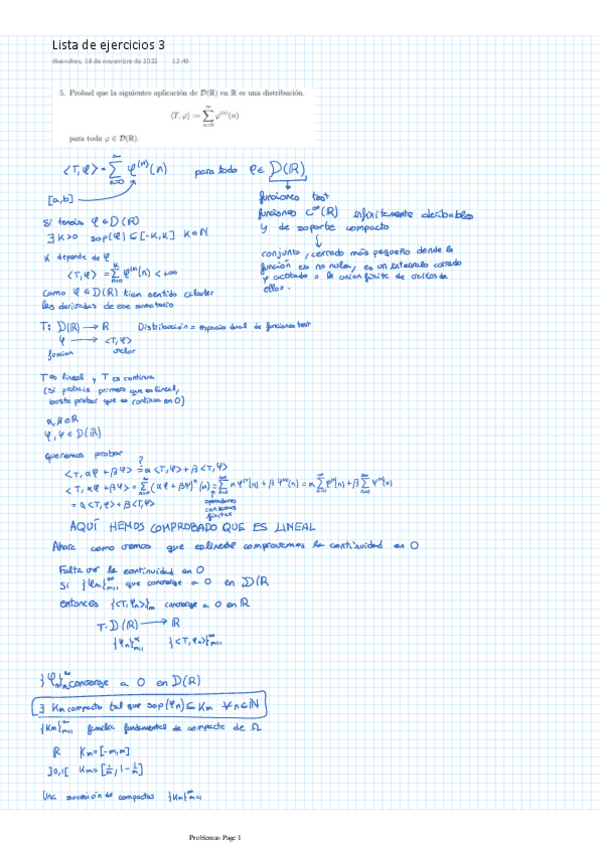 Lista de ejercicios 3
divendres, 18 de novembre de 2022 12:49
5. Probad que la siguientes aplicación de D(ℝ) en ℝ es una distribución.
⟨T, φ⟩ := ∑_{n=0}^{∞} φ^{(n)}(n)
para toda φ ∈ D(ℝ).
<T,φ> = ∑_{n=0}^{∞} φ^{(n)}(n) para todo φ ∈ D(ℝ)
[a,b]
funciones test
funciones C^∞(ℝ) infinitamente derivables
y de soporte compacto
Si tenéis φ ∈ D(ℝ)
∃ K>0 sop(φ) ⊆ [-K,K] K∈ℕ
K depende de φ
conjunto cerrado más pequeño donde la
función es no nula, es un intervalo cerrado
y acotado o la unión finita de varios de
ellos.
<T,φ> = ∑_{n=0}^{K} φ^{(n)}(n) < +∞
Como φ ∈ D(ℝ) tien sentido calcular
las derivadas de ese sumatorio
T: D(ℝ) → ℝ Distribución = espacio dual de funciones test
φ → <T,φ>
funcion valor
T es lineal y T es continua
(Si probáis primero que es lineal,
basta probar que es continua en 0)
α, β ∈ ℝ
φ, ψ ∈ D(ℝ)
queremos probar
?
<T, αφ + βψ> = α<T,φ> + β<T,ψ>
<T, αφ + βψ> = ∑_{n=0}^{∞} (αφ + βψ)^{(n)}(n) = ∑_{n=0}^{∞} αφ^{(n)}(n) + βψ^{(n)}(n) = α ∑_{n=0}^{∞} φ^{(n)}(n) + β ∑_{n=0}^{∞} ψ^{(n)}(n)
= α<T,φ> + β<T,ψ>
finitas
AQUÍ HEMOS COMPROBADO QUE ES LINEAL
Ahora como vemos que es lineal comprovemos la continuidad en 0
Falta ver la continuidad en 0
Si {φ_m}_{m=1}^{∞} que converge a 0 en D(ℝ
entonces {<T,φ_n>}_m converge a 0 en ℝ
T: D(ℝ) → ℝ
{φ_n}_{m=1}^{∞} {<T,φ_n>}_{m=1}^{∞}
{φ_n}_n^{∞} converge a 0 en D(ℝ)
∃ K_m compacto tal que sop(φ_n) ⊆ K_m ∀n∈ℕ
{K_m}_{m=1}^{∞} familia fundamental de compacto de Ω
ℝ K_m = [-m,m]
]0,1[ K_m = [1/m, 1-1/m]
Una sucesión de compactos {K_m}_{m=1}^{∞}
Problemas Page 1